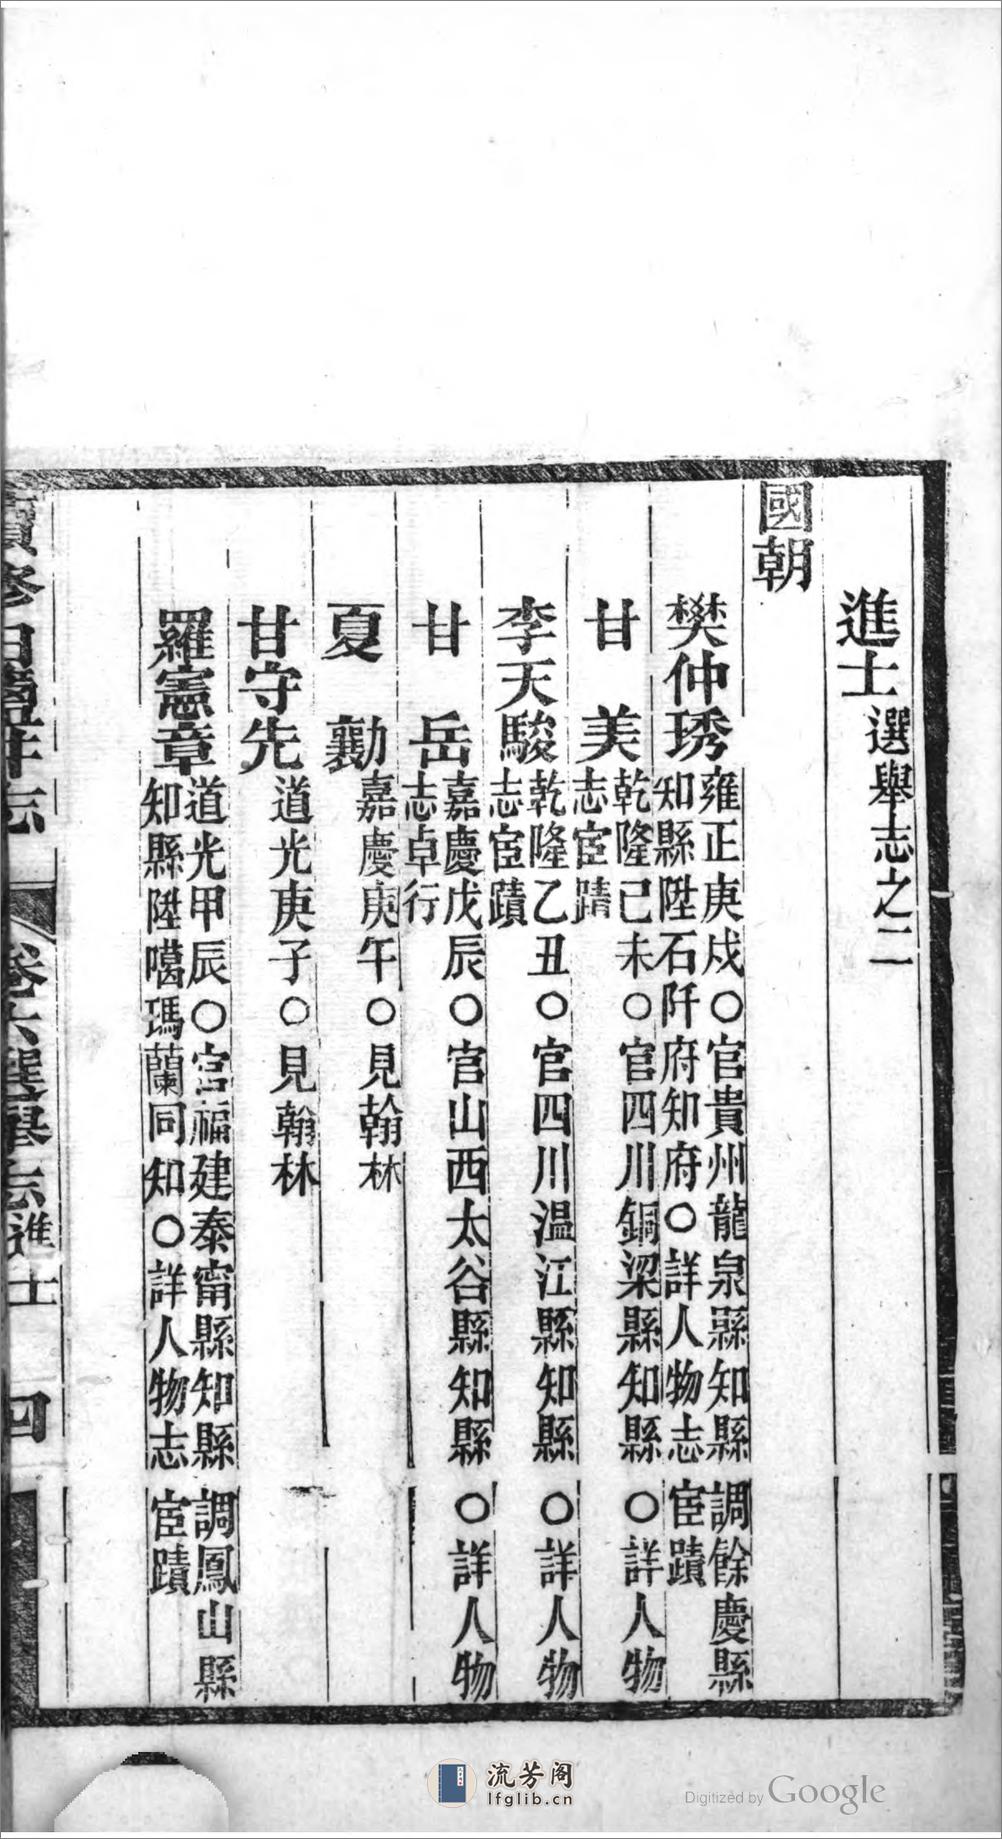 進士選舉志之二
國朝
樊仲琇雍正庚戍○官貴州龍泉縣知縣調餘慶縣
知縣陞石阡府知府○詳人物志宦蹟
甘美乾隆己未○官四川銅梁縣知縣○詳人物
志宦蹟
李天駿乾隆乙丑○官四川溫江縣知縣○詳人物
志宦蹟
甘岳嘉慶戊辰○官山西太谷縣知縣○詳人物
志卓行
夏勷嘉慶庚午○見翰林
甘守先道光庚子○見翰林
羅憲章道光甲辰○官福建泰甯縣知縣調鳳山縣
知縣陞噶瑪蘭同知○詳人物志宦蹟
續修白鹽井志 卷六選舉志進士 四
流芳阁
lfglib.cn
Digitized by Google